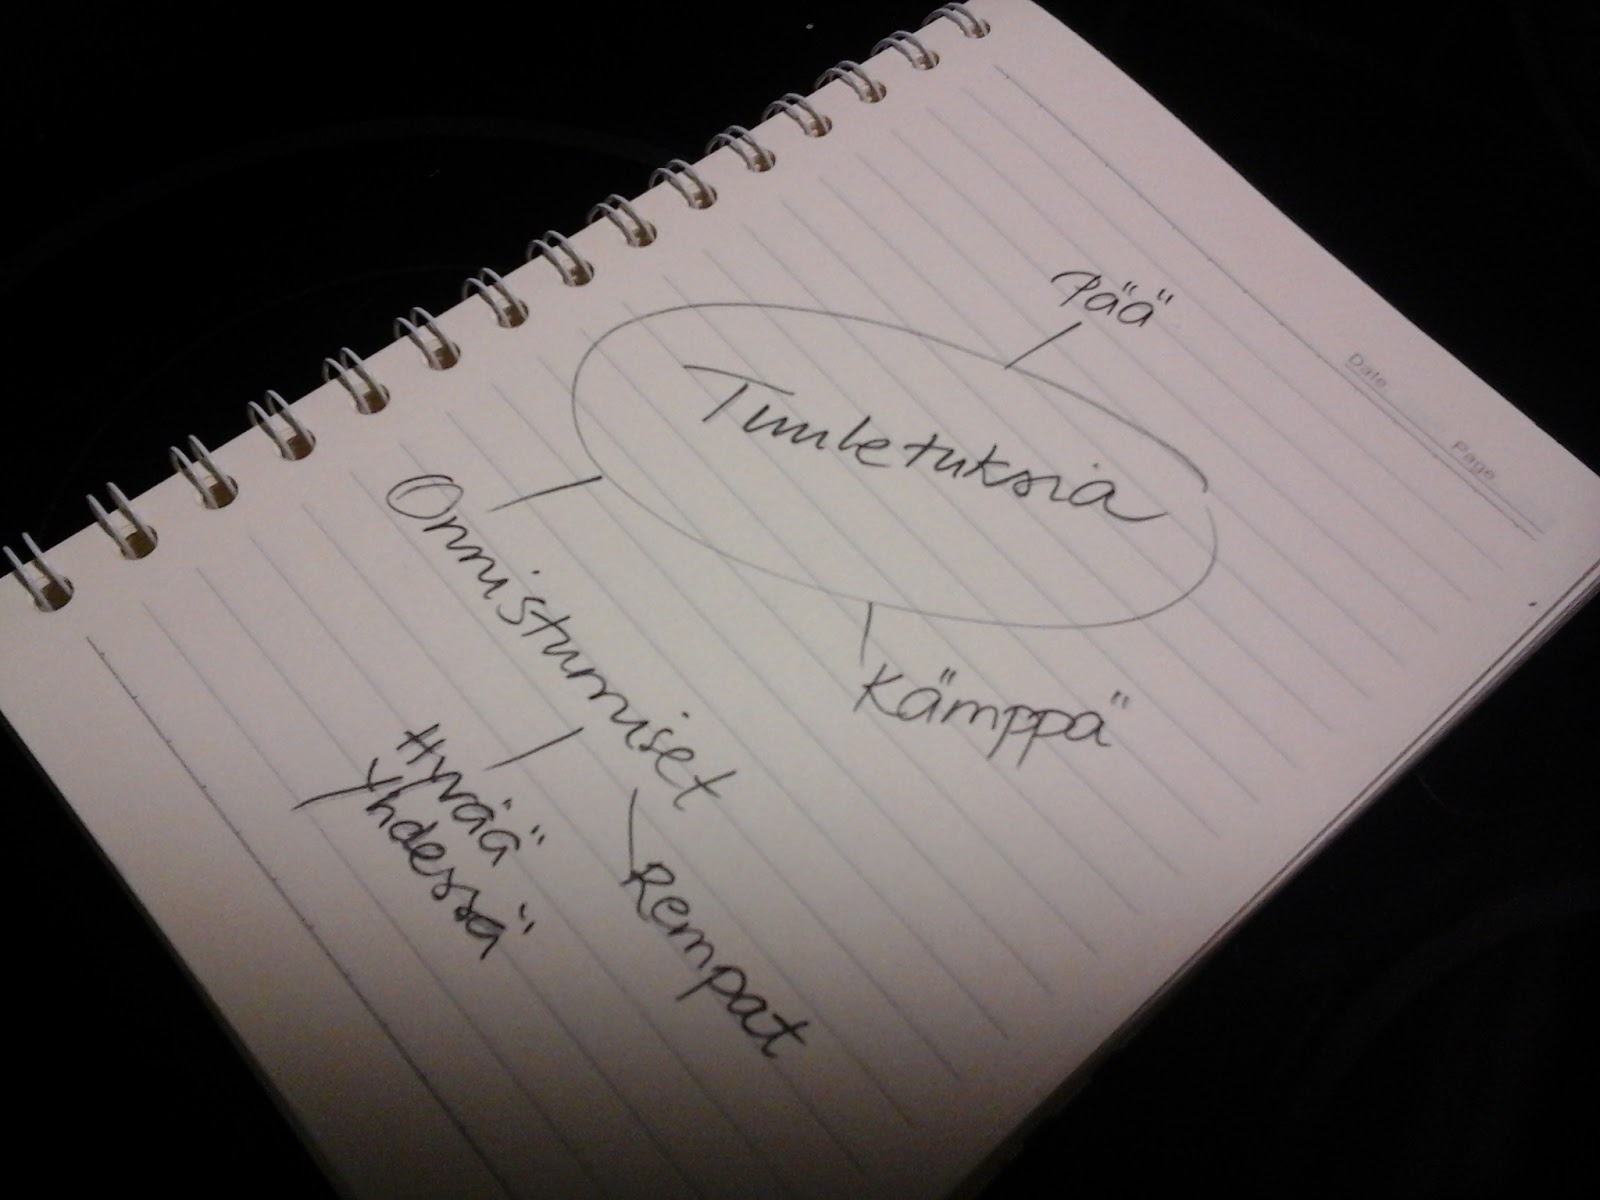 Pää
Date
Page
Tuuletuksia
Kämppä
Onnistumiset
Hyvää
yhdessä
Rempat